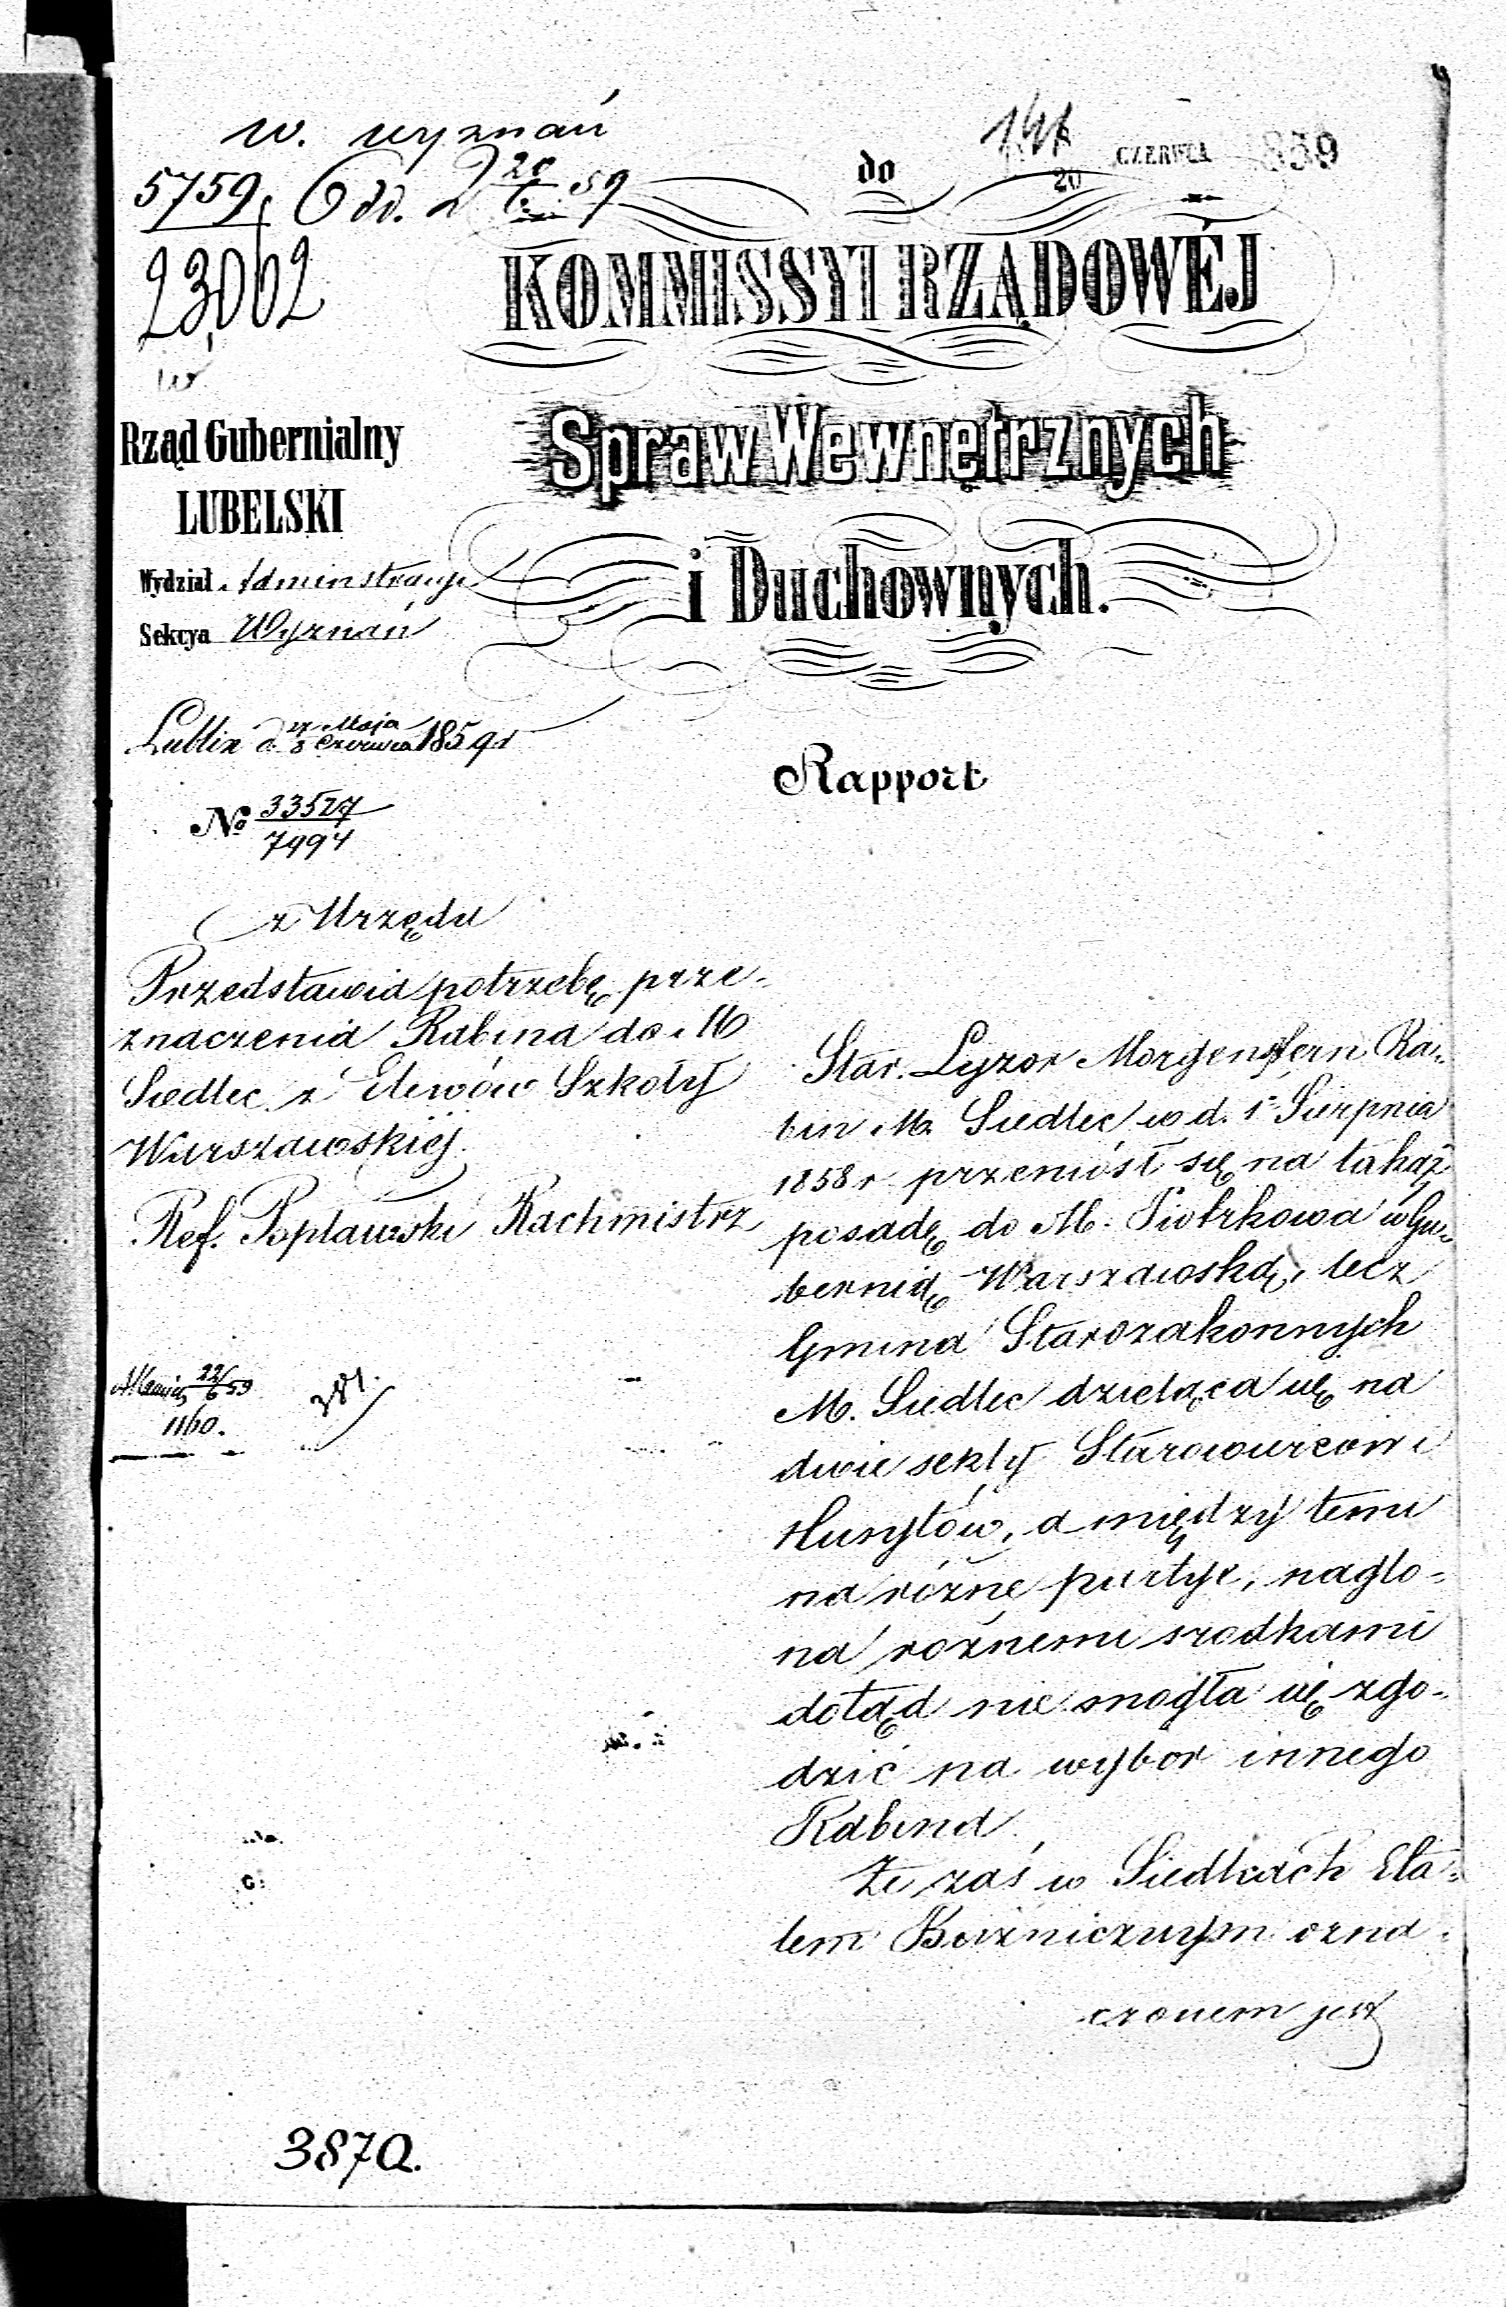 w. wyznań
5759. Odd. 2 20/6 59
23062
do
20 CZERWCA 1859
KOMMISSYI RZĄDOWÉJ
Spraw Wewnętrznych
i Duchownych.
Rząd Gubernialny
LUBELSKI
Wydział Adminstracyi
Sekcya Wyznań
Lublin d. Maja
8 Czerwca 1859 r
Rapport
No 33527
7994
z Urzędu
Przedstawia potrzebę prze-
znaczenia Rabina do M
Siedlec z Elewów Szkoły
Warszawskiéj.
Ref. Popławski Rachmistrz
22/6 59
1160.
381.
Star. Lyzor Morgenstern Ra-
bin M. Siedlec w d. 1 Sierpnia
1858 r przeniósł się na takąż
posadę do M. Piotrkowa w Gu-
bernią Warszawską, lecz
Gmina Starozakonnych
M. Siedlec dzieląca się na
dwie sekty Starowierców i
Husytów, a między temi
na rózne partye, naglo-
na rożnemi srodkami
dotąd nie mogła się zgo-
dzić na wybor innego
Rabina.
Ze zaś w Siedlcach Eta-
tem Bużnicznym ozna-
czonem jest
3870.